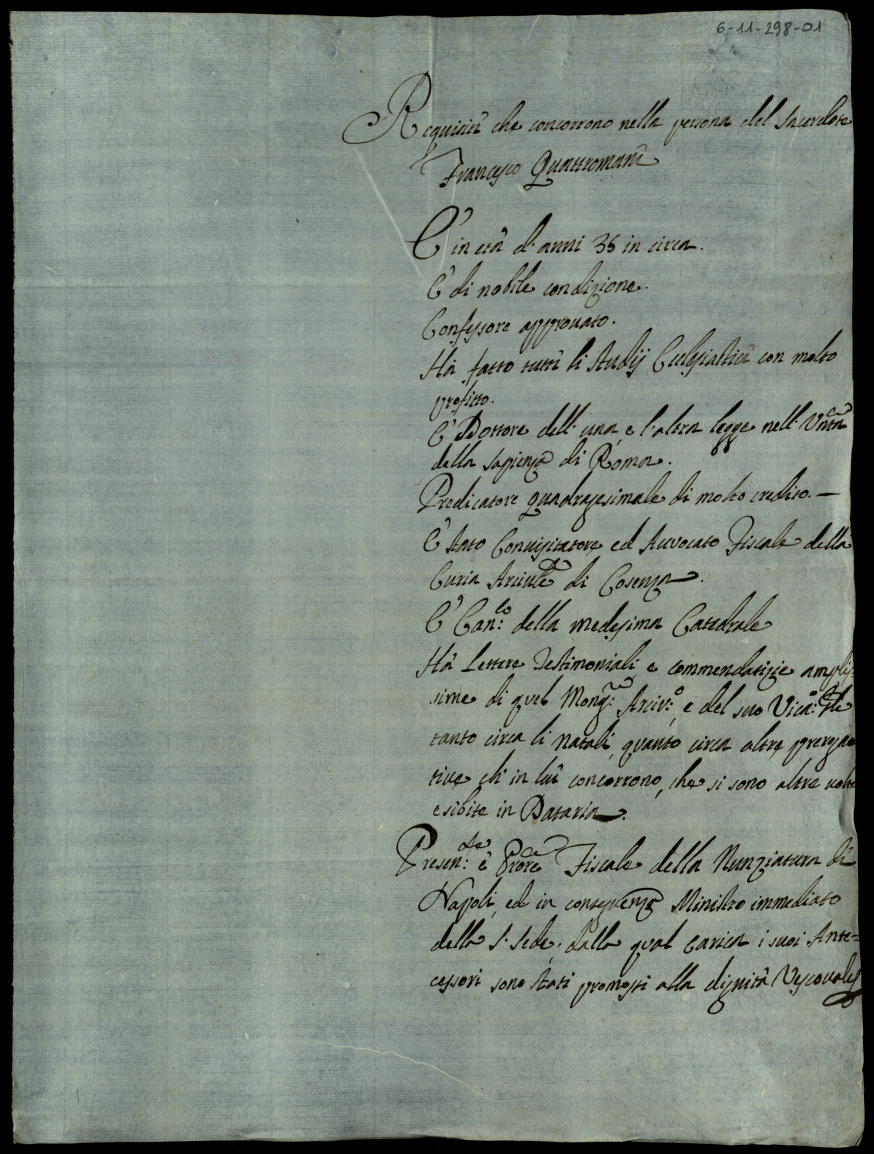 6-11-298-01
Requisiti che concorrono nella persona del Sacerdote
Francesco Quattromani
È in età d'anni 36 in circa.
È di nobile condizione.
Confessore approuato.
Hà fatto tutti li studij Ecclesiastici con molto
profitto.
È Dottore dell'una e l'altra legge nell'Vnità
della sapienza di Roma.
Predicatore quadragesimale di molto credito. —
È stato Conuisitatore ed Auuocato Fiscale della
Curia Arciule di Cosenza.
È Can:co della medesima Catedrale
Hà lettere testimoniali e commendatizie amplis
sime di quel Monsr: Arciv:o, e del suo Vica:o Gle
tanto circa li natali, quanto circa altre preroga
tiue ch'in lui concorrono, che si sono altre volte
esibite in Dataria.
Presen:te è Prore Fiscale della Nunziatura di
Napoli, ed in conseguenza Ministro immediato
della S. Sede, dalla qual carica i suoi Ante=
cessori sono stati promossi alla dignità Vescouale